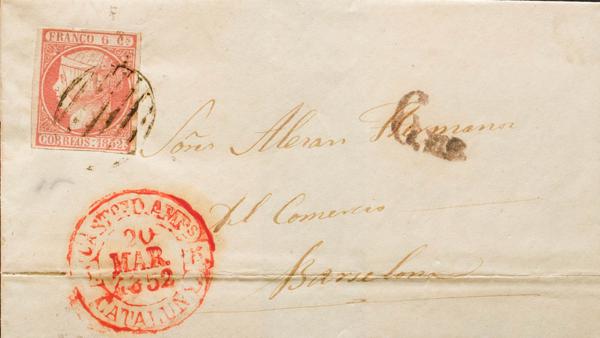 FRANCO 6 Cs
CORREOS. 1852.
Sres Aleran Hermanos
Del Comercio
Barcelona
20
MAR.
1852
CATALUÑA